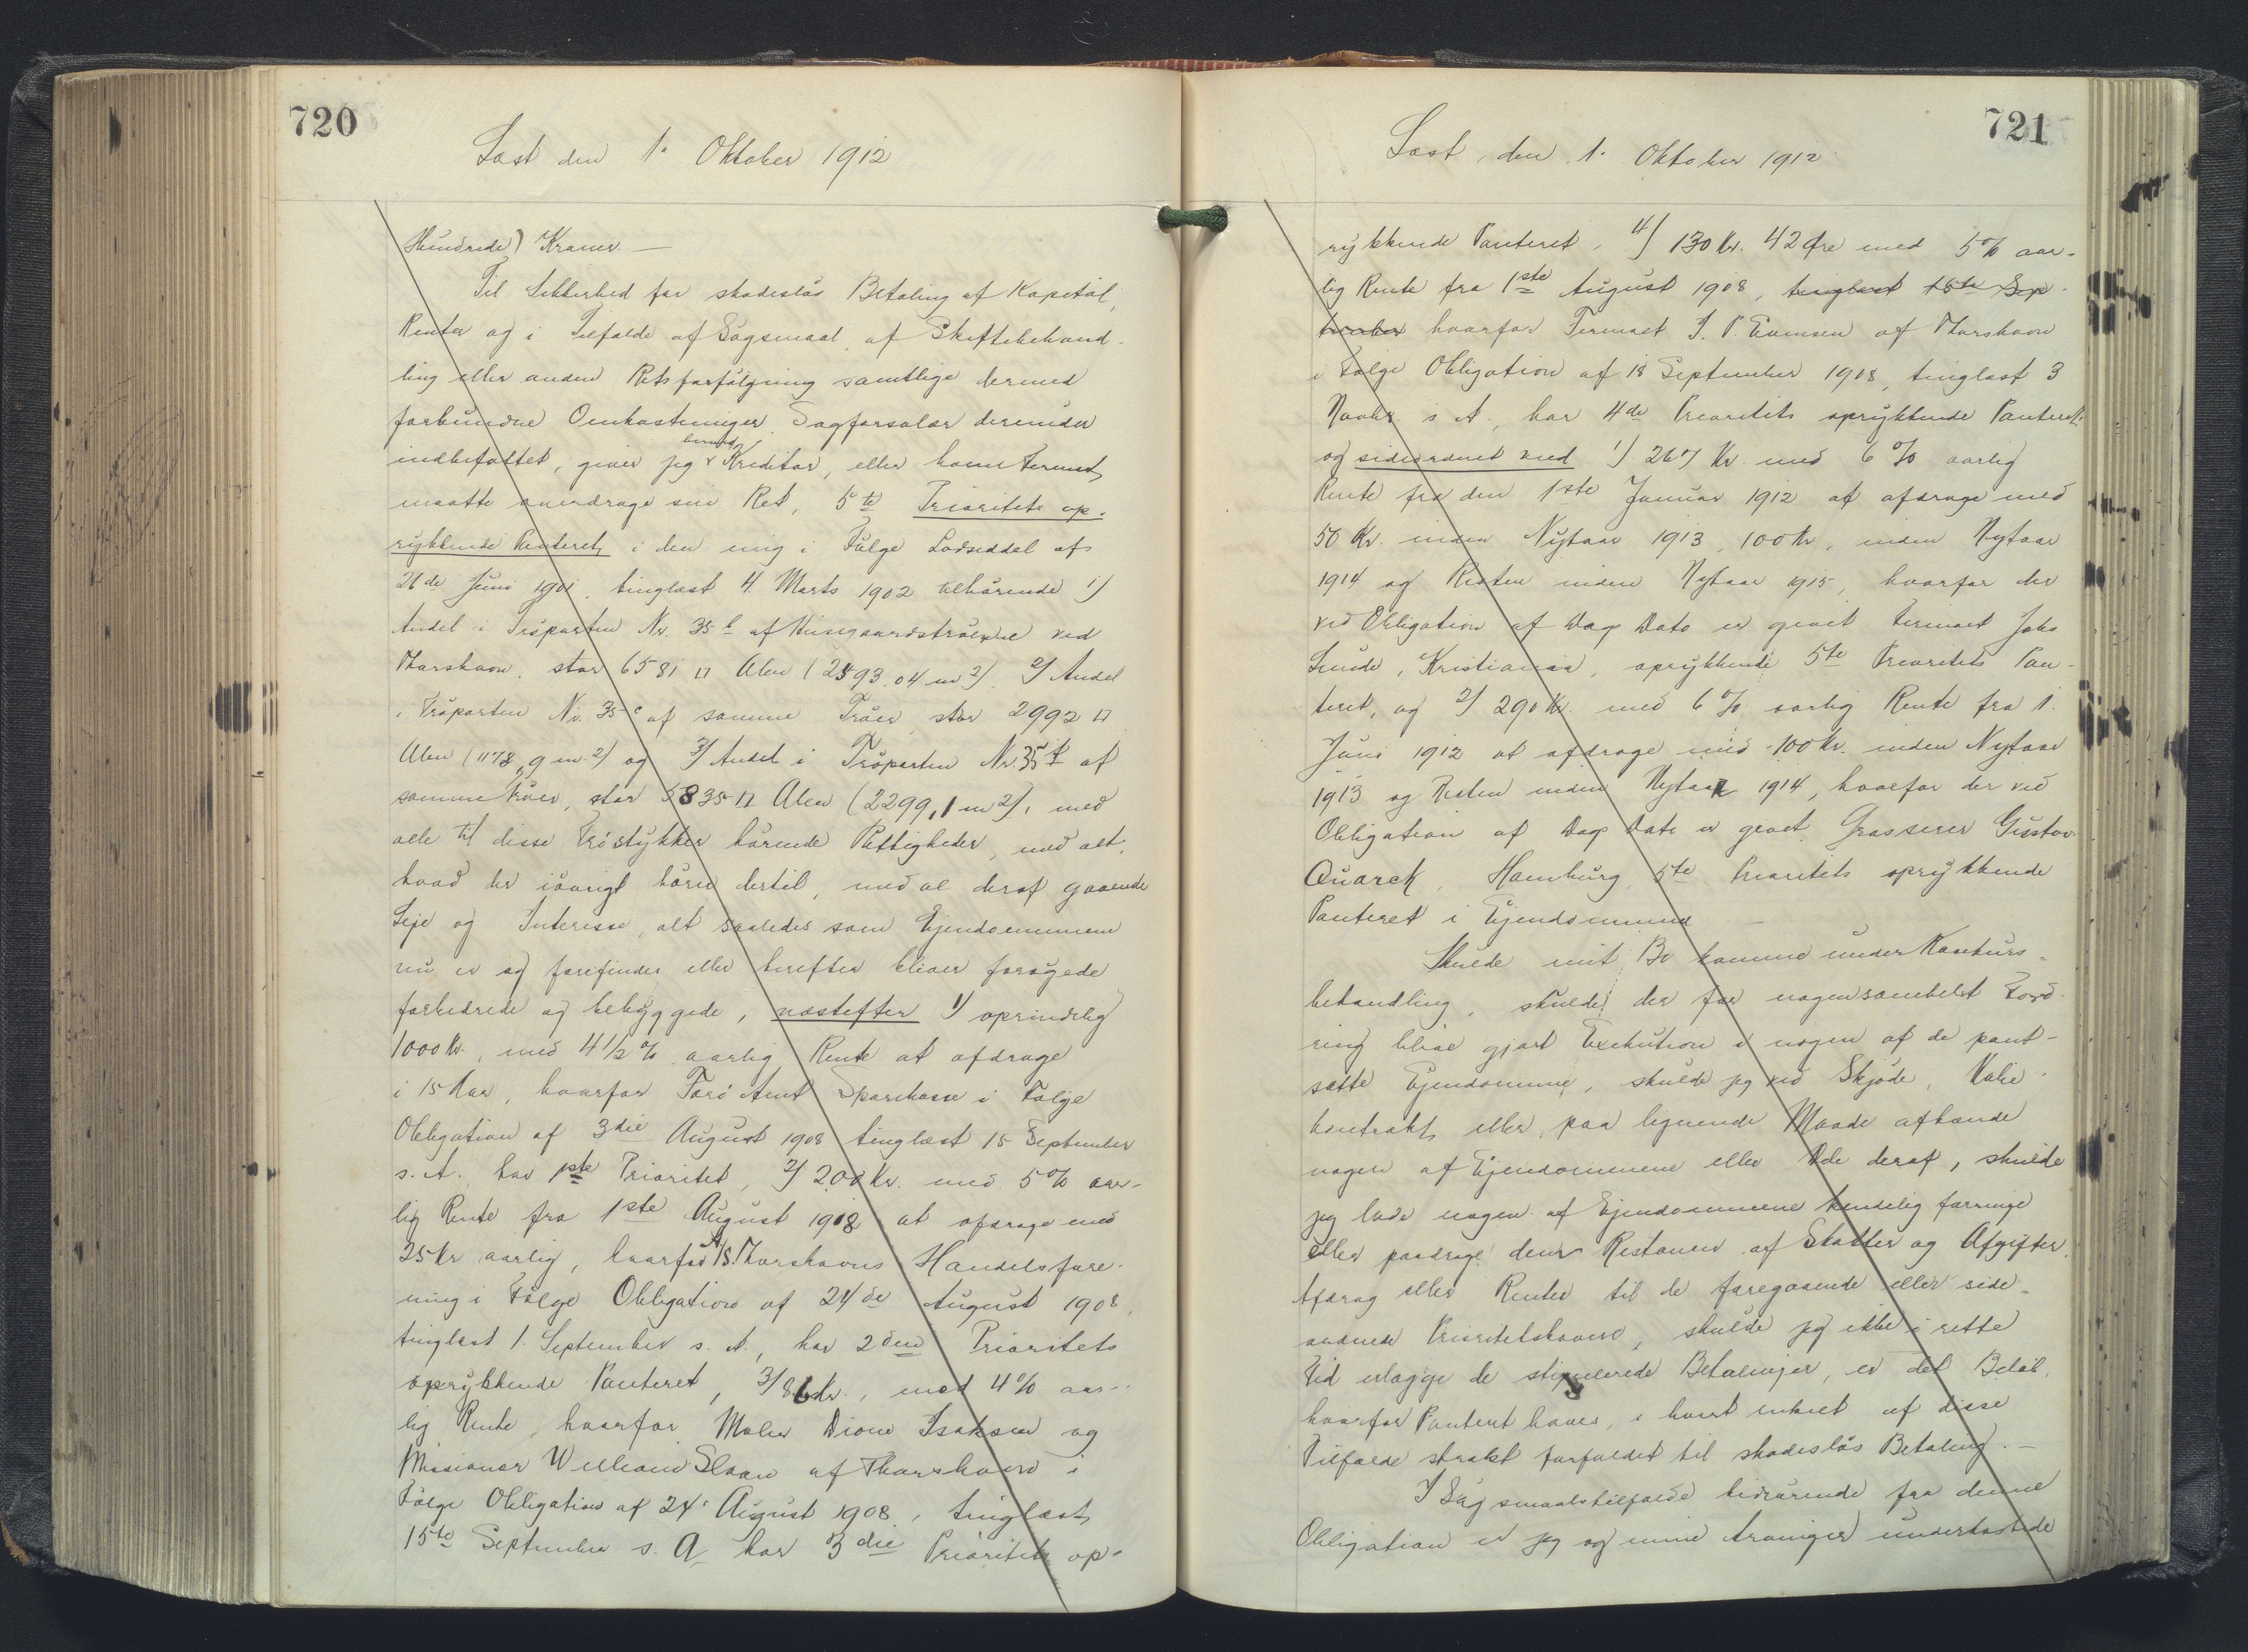 720
Læst den 1. Oktober 1912
Hundrede) Kroner. —
Til Sikkerhed for skadesløs Betaling af Kapital,
Renter og i Tilfælde af Søgsmaal, af Skiftebehand-
ling eller anden Retsforfølgning samtlige dermed
forbundne Omkostninger Sagførsalær derunder
indbefattet, giver jeg herved Kreditor, eller hvem Fornævnt
maatte overdrage sin Ret, 5te Prioritets op-
rykkende Panteret i den mig i Følge Lodseddel af
26de Juni 1901, tinglæst 4 Marts 1902 tilhørende 1)
Andel i Trøparten Nr. 35 b af Husegaardstrøerne ved
Thorshavn, stor 6581 □ Alen (2593.04 m2). 2) Andel
i Trøparten Nr. 35 c af samme Trøer, stor 2992 □
Alen (1178,9 m2) og 3) Andel i Trøparten Nr. 35 f af
samme Trøer, stor 5835 □ Alen (2299,1 m2), med
alle til disse Trøstykker hørende Rettigheder, med alt,
hvad der iøvrigt hører dertil, med al deraf gaaende
Leje og Interesse, alt saaledes som Ejendommene
nu er og forefindes eller herefter bliver forøgede
forbedrede og bebyggede, næstefter 1) oprindelig
1000 Kr., med 4 1/2 % aarlig Rente at afdrage
i 15 Aar, hvorfor Færø Amt Sparekasse i Følge
Obligation af 3die August 1908 tinglæst 15 September
s. A. har 1ste Prioritet, 2) 200 Kr. med 5 % aar-
lig Rente fra 1ste August 1908 at afdrage med
25 Kr aarlig, hvorfor A/S. Thorshavns Handelsfore-
ning i Følge Obligation af 24de August 1908,
tinglæst 1. September s. A., har 2den Prioritets
oprykkende Panteret, 3) 86 Kr., med 4 % aar-
lig Rente, hvorfor Maler Dione Isaksen og
Missionær William Sloan af Thorshavn i
Følge Obligation af 24. August 1908, tinglæst
15te September s. A har 3die Prioritets op-
721
Læst, den 1. Oktober 1912
rykkende Panteret, 4) 130 Kr. 42 Øre med 5 % aar-
lig Rente fra 1ste August 1908, tinglæst 15te Sep-
tember hvorfor Firmaet J. P. Evensen af Thorshavn
i Følge Obligation af 18 September 1908, tinglæst 3
Novbr s. A., har 4de Prioritets oprykkende Panteret.
og sideordnet med 1) 267 Kr. med 6 % aarlig
Rente fra den 1ste Januar 1912 at afdrage med
50 Kr. inden Nytaar 1913, 100 Kr, inden Nytaar
1914 og Resten inden Nytaar 1915, hvorfor der
ved Obligation af Dags Dato er givet Firmaet Johs
Lunde, Kristiania, oprykkende 5te Prioritets Pan-
teret, og 2) 290 Kr. med 6 % aarlig Rente fra 1.
Juni 1912 at afdrage med 100 Kr. inden Nytaar
1913 og Resten inden Nytaar 1914, hvorfor der ved
Obligation af Dags Dato er givet Grosserer Gustav
Quarck, Hamburg, 5te Prioritets oprykkende
Panteret i Ejendommene —
Skulde mit Bo komme under Konkurs-
behandling, skulde der for nogensomhelst Ford-
ring blive gjort Exekution i nogen af de pant-
satte Ejendomme, skulde jeg ved Skjøde, Købe-
kontrakt eller paa lignende Maade afhænde
nogen af Ejendommene eller Dele deraf, skulde
jeg lade nogen af Ejendommene kendelig forringe
eller paadrage dem Restancer af Skatter og Afgifter,
Afdrag eller Renter til de foregaaende eller side-
ordnede Prioritetshavere, skulde jeg ikke i rette
Tid erlægge de stipulerede Betalinger, er det Beløb,
hvorfor Panteret haves, i hvert enkelt af disse
Tilfælde strakst forfaldet til skadesløs Betaling. —
I Søgsmaalstilfælde hidrørende fra denne
Obligation er jeg og mine Arvinger underkastede